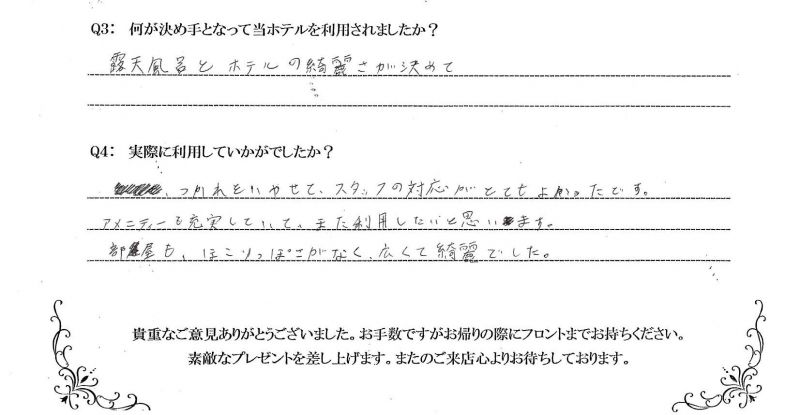 Q3: 何が決め手となって当ホテルを利用されましたか？
露天風呂とホテルの綺麗さが決めて
Q4: 実際に利用していかがでしたか？
、つかれをいやせて、スタッフの対応がとてもよかったです。
アメニティーも充実していて、また利用したいと思います。
部屋も、ほこりっぽさがなく、広くて綺麗でした。
貴重なご意見ありがとうございました。お手数ですがお帰りの際にフロントまでお持ちください。
素敵なプレゼントを差し上げます。またのご来店心よりお待ちしております。